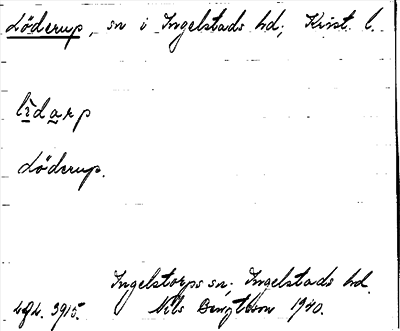 Löderup, sn i Ingelstads hd; Krist. l.
lìdarp
Löderup.
Ingelstorps sn; Ingelstads hd.
3915. Nils Bengtsson 1940.